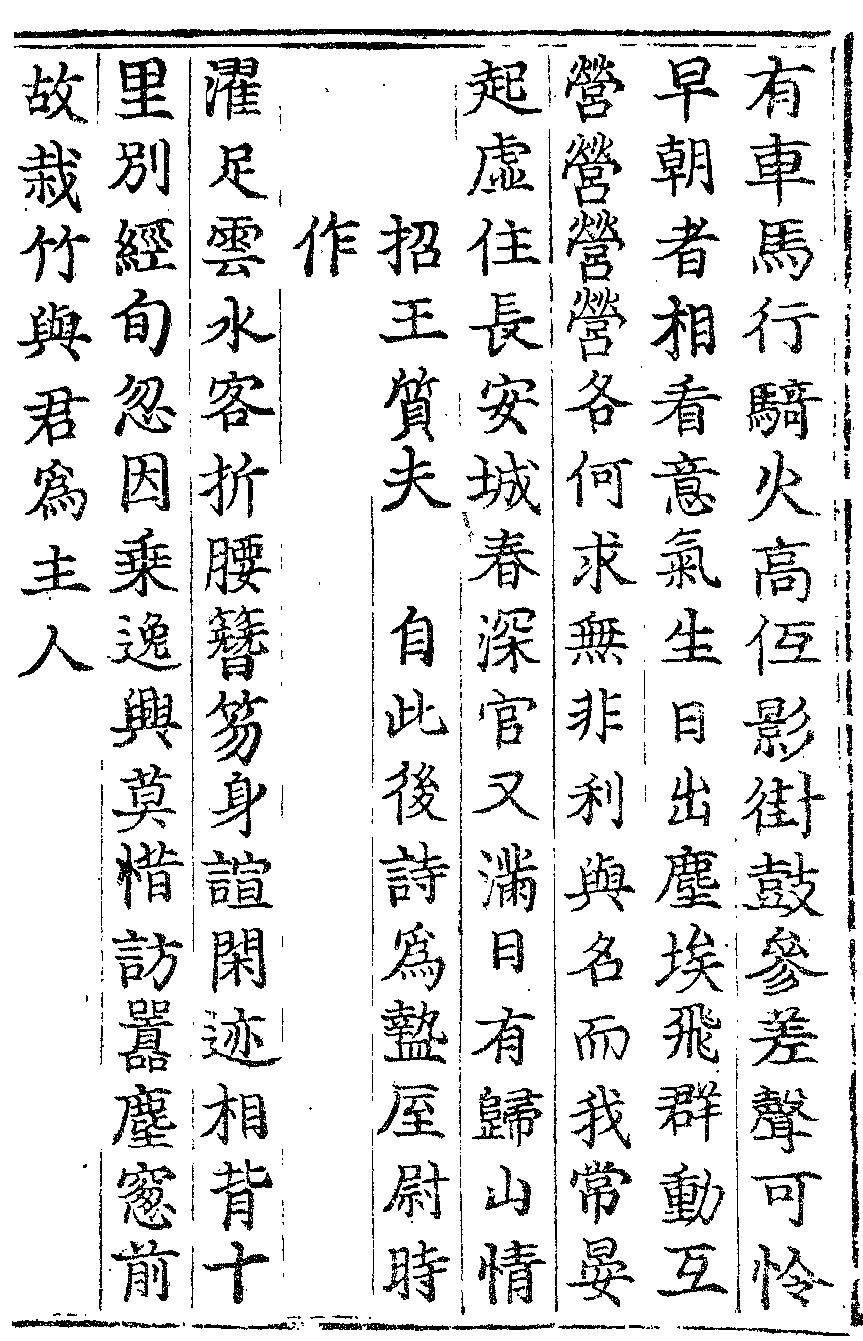 有車馬行騎火高低影街鼓參差聲可怜
早朝者相看意氣生日出塵埃飛群動互
營營營營各何求無非利與名而我常晏
起虛住長安城春深官又滿日有歸山情
招王質夫　自此後詩爲盩厔尉時
作
濯足雲水客折腰簪笏身諠閑迹相背十
里別經旬忽因乗逸興莫惜訪囂塵窓前
故栽竹與君爲主人